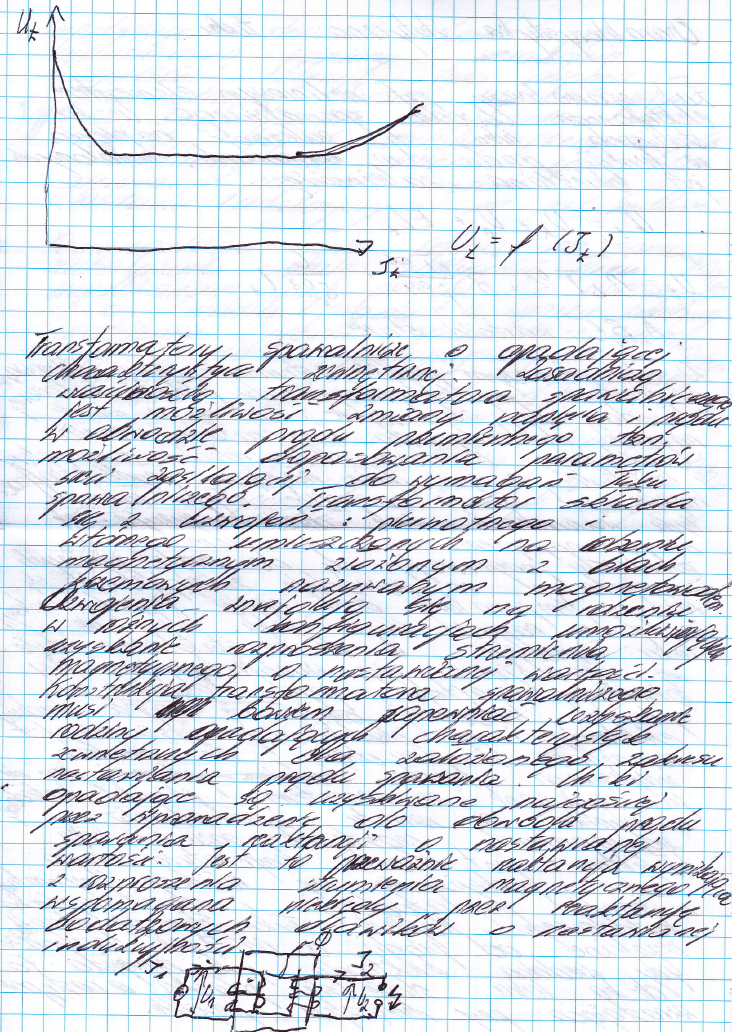 Uₜ
Uₜ = f (Jₜ)
Jₜ
Transformatory spawalnicze o opadającej
charakterystyce zewnętrznej. Zasadniczą
właściwością transformatora spawalniczego
jest możliwość zmiany napięcia i prądu
w obwodzie prądu pierwotnego tzn.
możliwość dopasowania parametrów
sieci zasilającej do wymagań łuku
spawalniczego. Transformator składa
się z uzwojeń: pierwotnego i
wtórnego umieszczonych na rdzeniu
magnetycznym złożonym z blach
nazywanym magnetowodem.
Uzwojenia znajdują się na rdzeniu
w różnych konfiguracjach umożliwiających
uzyskanie rozproszenia strumienia
magnetycznego o nastawianej wartości.
Konstrukcja transformatora spawalniczego
musi bowiem zapewniać uzyskanie
rodziny opadających charakterystyk
zewnętrznych dla założonego zakresu
nastawiania prądu spawania. Ch-ki
opadające są uzyskiwane najczęściej
przez wprowadzenie do obwodu prądu
spawania reaktancji o nastawialnej
wartości. Jest to przeważnie reaktancja wynikająca
z rozproszenia strumienia magnetycznego
wspomagana niekiedy przez reaktancję
dodatkowych dławików o nastawianej
indukcyjności.
J₁ U₁ Φ J₂ U₂